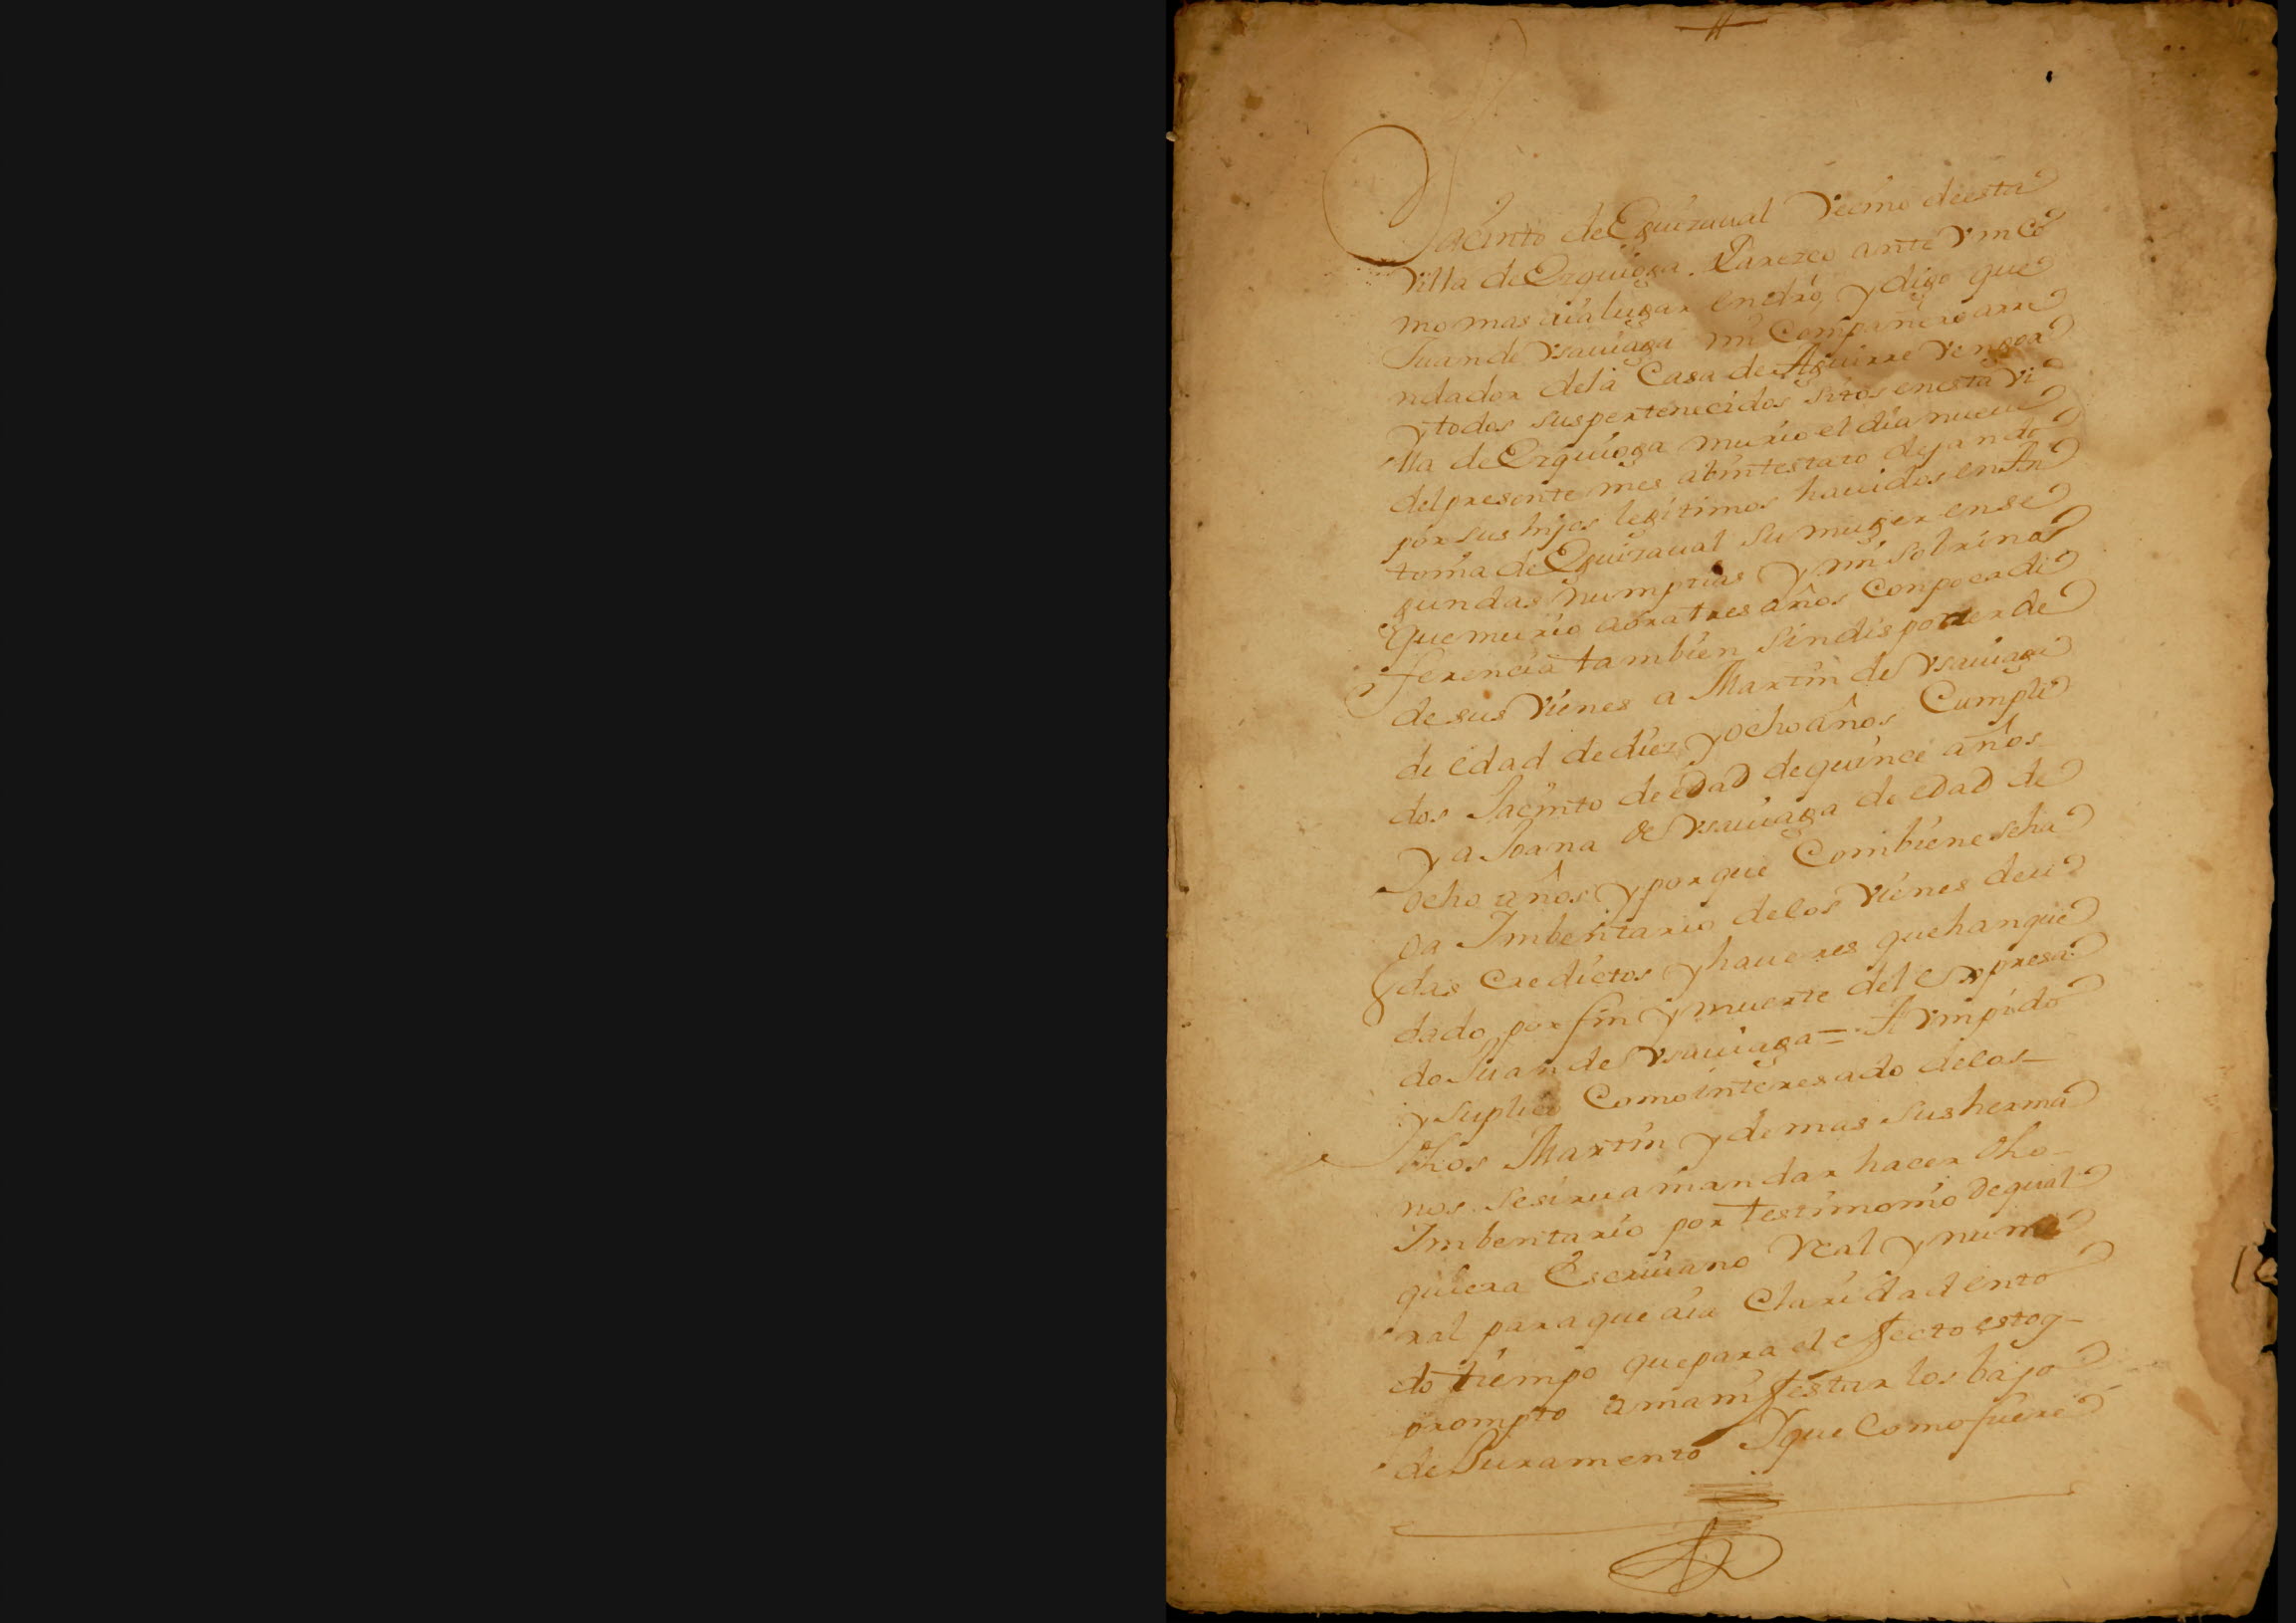 Jacinto de Eguizaual Vecino de esta
Villa de Ezquioga. Parezco ante Vm Co
mo mas aia lugar en dro, y digo que
Juan de Ysauiaga mi Compañero arre
ndador de la Casa de Aguirre Vengoa
y todos sus pertenecidos sitos en esta Vi
lla de Ezquioga murio el dia nueue
del presente mes abintestato dejando
por sus hijos legitimos hauidos en An
tonia de Eguizaual su muger en se
gundas numpcias y mi sobrina
que murio aora tres años Con poca di
ferencia tambien sin disponer de
de sus Vienes a Martin de Ysauiaga
de edad de diez y ocho años Cumpli
dos Jacinto de edad de quince años
y a Joana de Ysauiaga de edad de
ocho años y porque Combiene se ha
ga Imbentario de los Vienes deu
das Credictos y haueres que han que
dado por fin y muerte del expresa
do Juan de Ysauiaga = A Vm pido
y suplico Como interesado de los
dhos Martin y demas sus herma
nos se sirua mandar hacer dho
Imbentario por testimonio de qual
quiera Escriuano Real y nume
ral para que aia Claridad en to
do tiempo que para el efecto estoy
prompto a manifestar los bajo
de Juramento Y que Como fuere